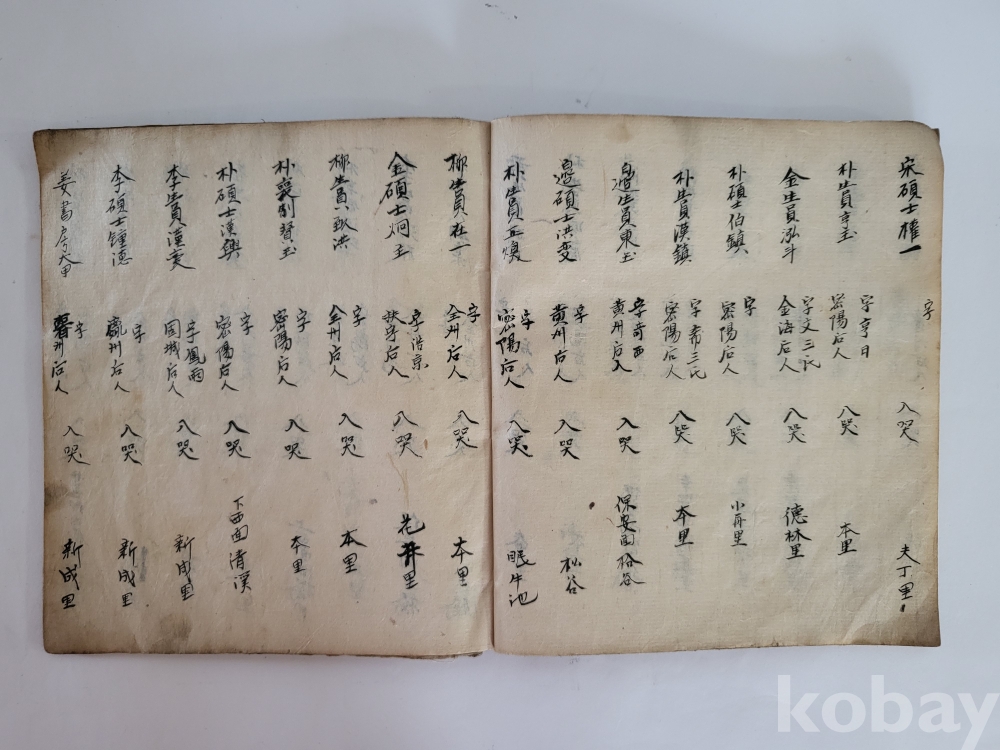 宋碩士權一 字 入哭 夫丁里
朴生員亨玉 字亨日 密陽后人 入哭 本里
金生員泓斗 字文三氏 金海后人 入哭 德林里
朴碩士伯鎮 字 密陽后人 入哭 小再里
朴生員漢鎮 字希三氏 密陽后人 入哭 本里
邊生員東玉 字奇西 黃州后人 入哭 保安面 谷
邊碩士洪变 字 黃州后人 入哭 松谷
朴生員 煥 字 密陽后人 入哭 眠牛池
柳生員在一 字 全州后人 入哭 本里
金碩士炯圭 字浩京 扶寧后人 入哭 花井里
柳生員 洪 字 全州后人 入哭 本里
朴襄別贊玉 字 密陽后人 入哭 本里
朴碩士漢興 字 密陽后人 入哭 下西面清漢
李生員漢雯 字鳳雨 固城后人 入哭 新成里
李碩士鍾德 字 全州后人 入哭 新成里
姜書房大甲 字 晋州后人 入哭 新成里
kobay